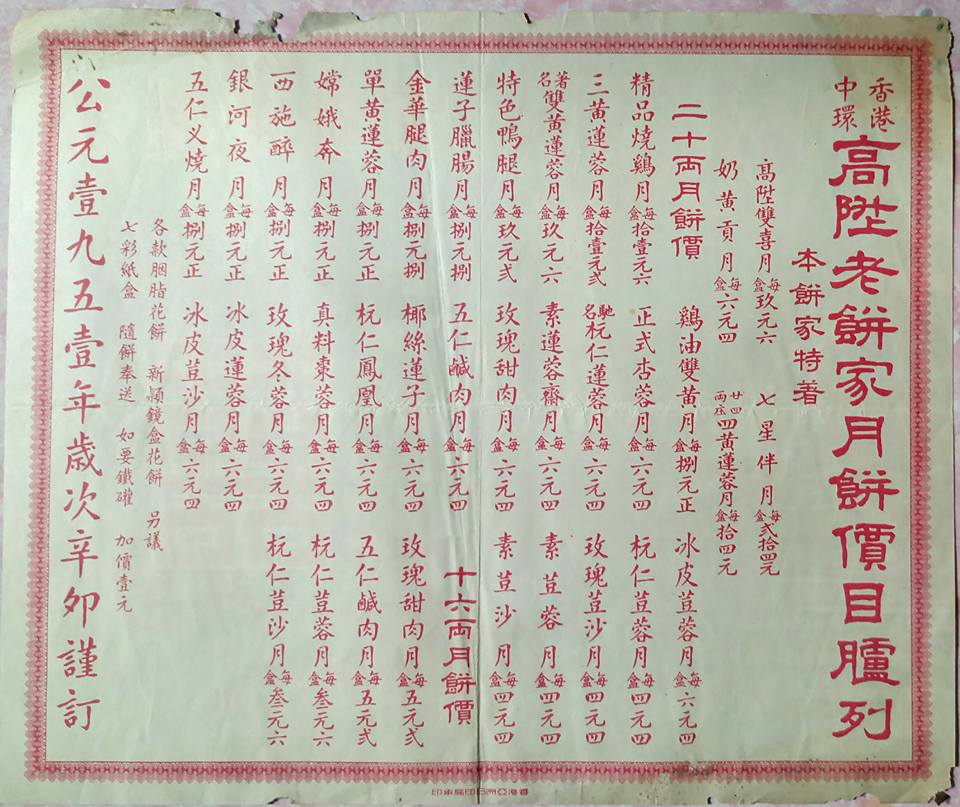 香港中環高陞老餅家月餅價目臚列
本餅家特著
高陞雙喜月每盒玖元六 七星伴月每盒弍拾四元
奶黃貢月每盒六元四 廿四両庄四黃蓮蓉月每盒拾四元
二十両月餅價 鷄油雙黃月每盒捌元正 冰皮荳蓉月每盒六元四
精品燒鷄月每盒拾壹元六 正式杏蓉月每盒六元四 杬仁荳蓉月每盒四元四
三黃蓮蓉月每盒拾壹元弍 馳名杬仁蓮蓉月每盒六元四 玫瑰荳沙月每盒四元四
著名雙黃蓮蓉月每盒玖元六 素蓮蓉齋月每盒六元四 素荳蓉月每盒四元四
特色鴨腿月每盒玖元弍 玫瑰甜肉月每盒六元四 素荳沙月每盒四元四
蓮子臘腸月每盒捌元捌 五仁鹹肉月每盒六元四 十六両月餅價
金華腿肉月每盒捌元捌 椰絲蓮子月每盒六元四 玫瑰甜肉月每盒五元弍
單黃蓮蓉月每盒捌元正 杬仁鳳凰月每盒六元四 五仁鹹肉月每盒五元弍
嫦娥奔月每盒捌元正 真料棗蓉月每盒六元四 杬仁荳蓉月每盒叁元六
西施醉月每盒捌元正 玫瑰冬蓉月每盒六元四 杬仁荳沙月每盒叁元六
銀河夜月每盒捌元正 冰皮蓮蓉月每盒六元四
五仁义燒月每盒捌元正 冰皮荳沙月每盒六元四
各款胭脂花餅 新穎鏡盒花餅 另議
七彩紙盒 隨餅奉送 如要鐵礶 加價壹元
公元壹九五壹年歲次辛夘謹訂
香港亞洲石印局承印